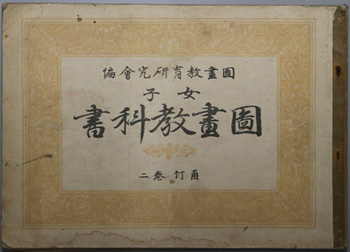 圖畫教育硏究會編
女子
圖畫教科書
再訂 卷二